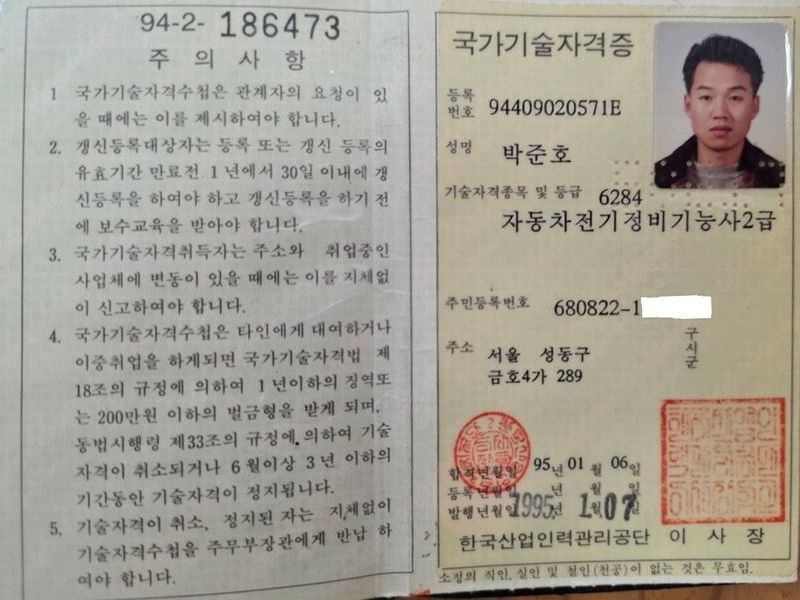 94-2- 186473
주 의 사 항
1 국가기술자격수첩은 관계자의 요청이 있
을 때에는 이를 제시하여야 합니다.
2. 갱신등록대상자는 등록 또는 갱신 등록의
유효기간 만료전 1년에서 30일 이내에 갱
신등록을 하여야 하고 갱신등록을 하기 전
에 보수교육을 받아야 합니다.
3. 국가기술자격취득자는 주소와 취업중인
사업체에 변동이 있을 때에는 이를 지체없
이 신고하여야 합니다.
4. 국가기술자격수첩은 타인에게 대여하거나
이중취업을 하게되면 국가기술자격법 제
18조의 규정에 의하여 1년이하의 징역또
는 200만원 이하의 벌금형을 받게 되며,
동법시행령 제33조의 규정에 의하여 기술
자격이 취소되거나 6월이상 3년 이하의
기간동안 기술자격이 정지됩니다.
5. 기술자격이 취소, 정지된 자는 지체없이
기술자격수첩을 주무부장관에게 반납 하
여야 합니다.
국가기술자격증
등록
번호 94409020571E
성명 박준호
기술자격종목 및 등급 6284
자동차전기정비기능사2급
주민등록번호 680822-1
주소 서울 성동구
구시군
금호4가 289
합격년월일 95년 01월 06일
등록년월일 년 월 일
발행년월일 1995 1.07
한국산업인력관리공단 이 사 장
소정의 직인, 실인 및 철인(천공)이 없는 것은 무효임.